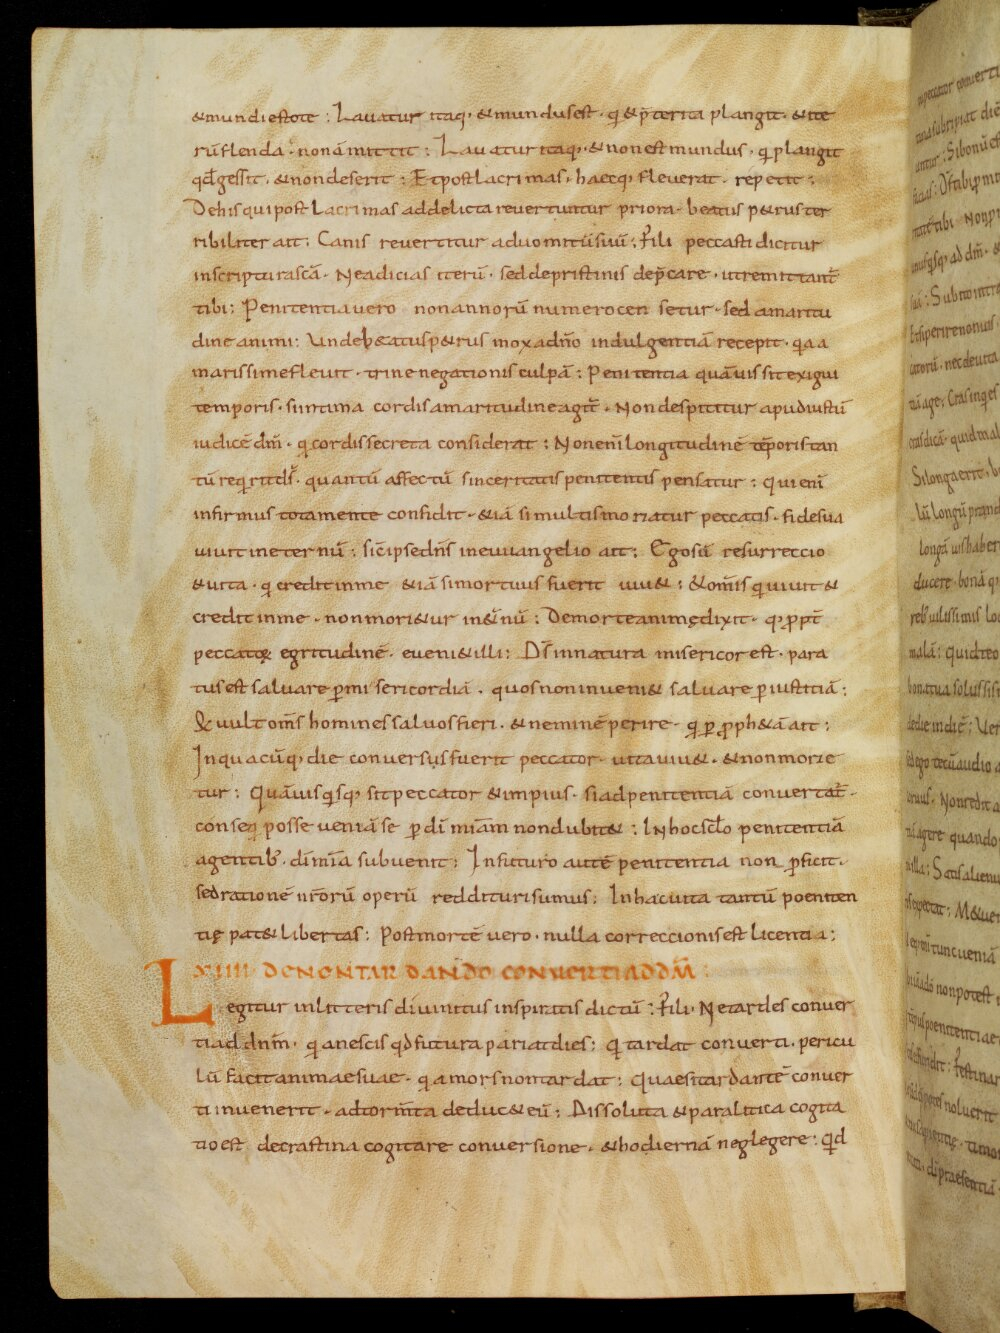 &mundi estote : Lauatur itaq; & mundus est · qi & p̄terita plangit · & ite
rū flenda · non āmittit : Lauatur itaq; · & non est mundus · qi plangit
qđ gessit · & non deserit : Et post lacrimas · haec q; fleuerat · repetit :
De his qui post lacrimas ad delicta reuertuntur priora · beatus p&rus ter
ribiliter ait : Canis reuertitur ad uomitū suū : Fili peccasti dicitur
in scriptura scā · Ne adicias iterū · sed de pristinis dep̄care · ut remittant̄
tibi : Penitentia uero non annorū numero censetur · sed amaritu
dine animi : Unde b&atus p&rus mox a dn̄o indulgentiā recepit · qia a
marissime fleuit · trine negationis culpā : Penitentia quāuis sit exigui
temporis · si intima cordis amaritudine agit̄ · Non despicitur apud iustū
iudicē dm̄ · qi cordis secreta considerat : Non enī longitudinē tēporis tan
tū reqirit ds̄ · quantū affectū sinceritatis penitentis pensatur : Qui enī
infirmus tota mente confidit · & iā si multis moriatur peccatis · fides ua
uiuit in eternū : sic̄ ipse dn̄s in euuangelio ait : Ego sū resurreccio
& uita · qi credit in me & iā si mortuus fuerit uiu& : & omīs qi uiuit &
credit in me · non mori&ur in &̄nū : De morte animę dixit · q; p̱pt̄
peccatorꝫ egritudinē · eueni& illi : Ds̄ in natura misericors est · para
tus est saluare p̱ misericordiā · quos non inueni& saluare p̱ iustitiā :
Qi uult om̄s homines saluos fieri · & neminē perire · qi p̱ p̱ph&ā ait :
In quacūq; die conuersus fuerit peccator · uita uiu& · & non morie
tur : Quāuis qisq; sit peccator & impius · si ad penitentiā conuertat̄ ·
conseqi posse ueniā se p̱ dī miām non dubit& : In hoc sclo penitentiā
agentib; · dī mīa subuenit : In futuro autē penitentia non p̱ficit ·
sed rationē nr̄orū operū reddituri sumus : In hac uita tantū poeniten
tię pat& libertas : Post mortē uero · nulla correccionis est licentia :
LXIIII DE NON TARDANDO CONUERTI AD DM̄ :
Legitur in litteris diuinitus inspiratis dictū : Fili · Ne tardes conuer
ti ad dnm̄ · qia nescis qđ futura pariat dies : Qi tardat conuerti · pericu
lū facit animae suae · qia mors non tardat : Quae si tardantē conuer
ti inuenerit · ad torm̄ta deduc& eū : Dissoluta & paralitica cogita
tio est de crastina cogitare conuersione · & hodiernā neglegere : Qid